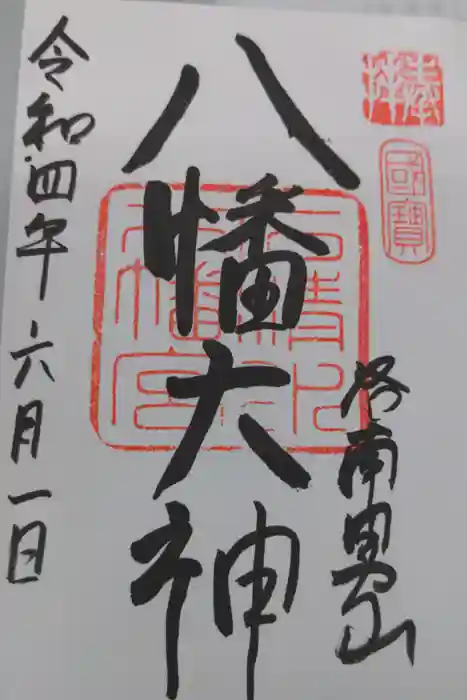 奉拝
國寶
洛南男山
八幡大神
石清水八幡宮
令和四年六月一日